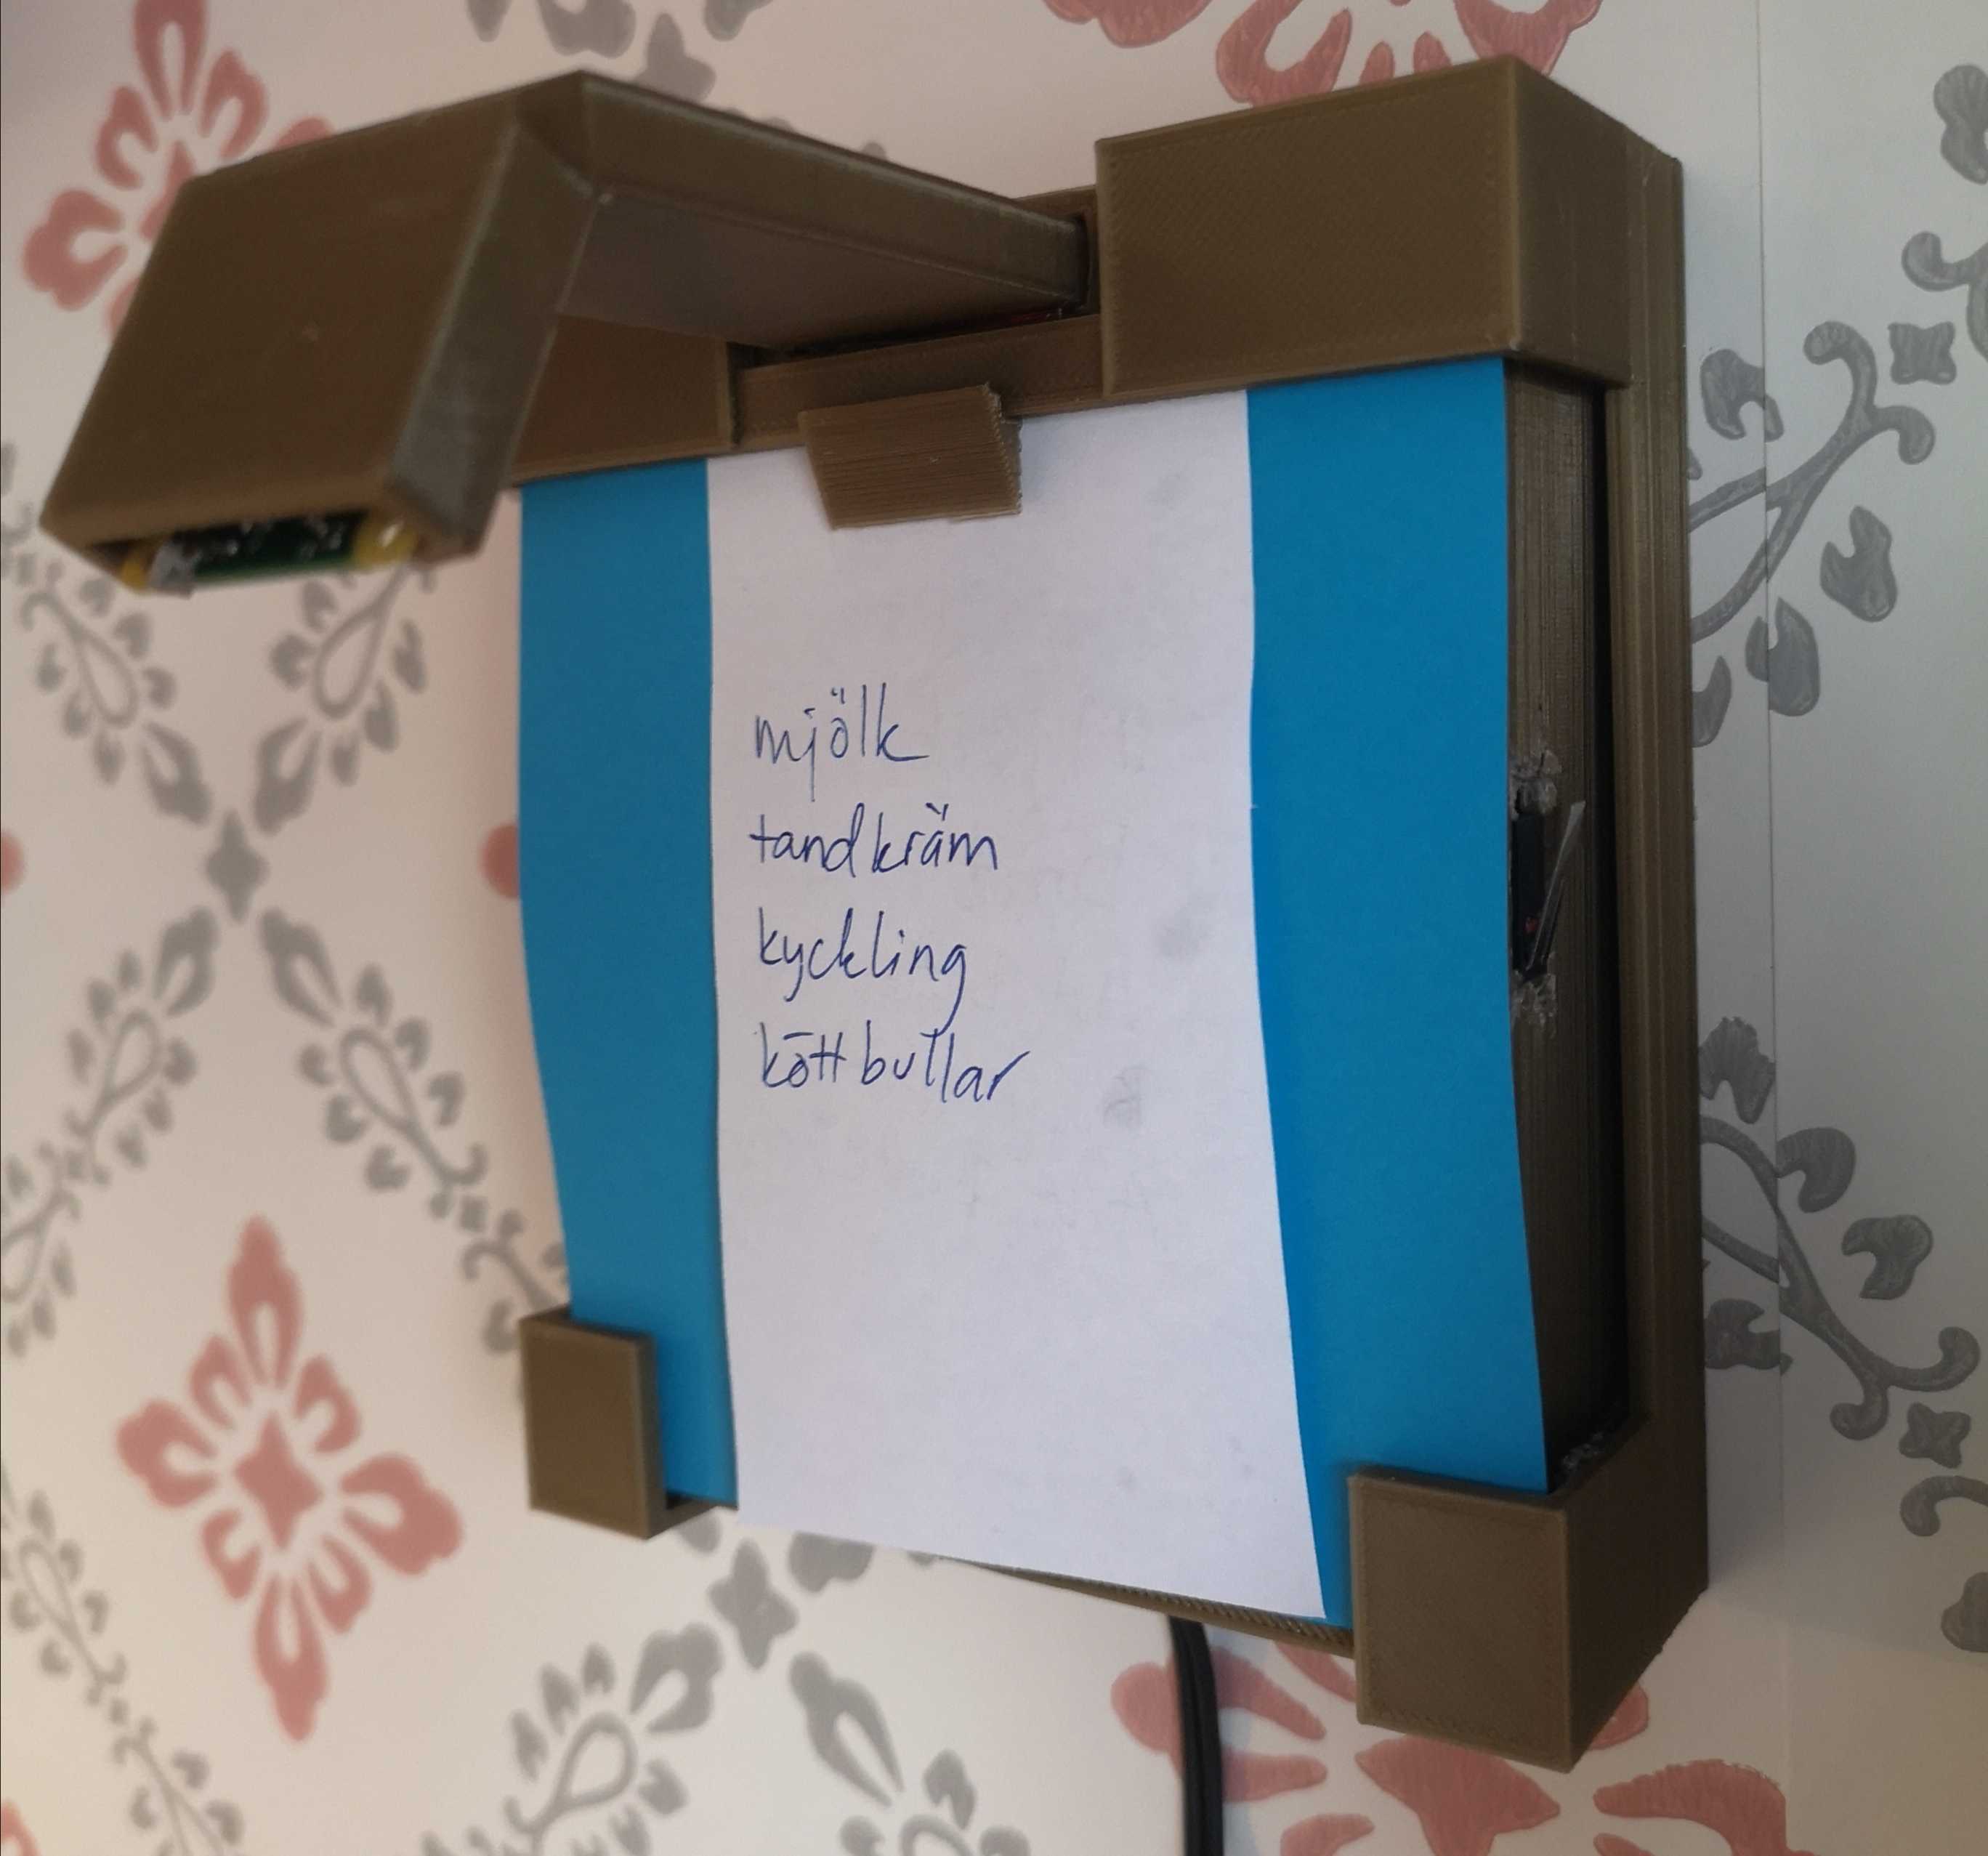 mjölk
tandkräm
kyckling
köttbullar